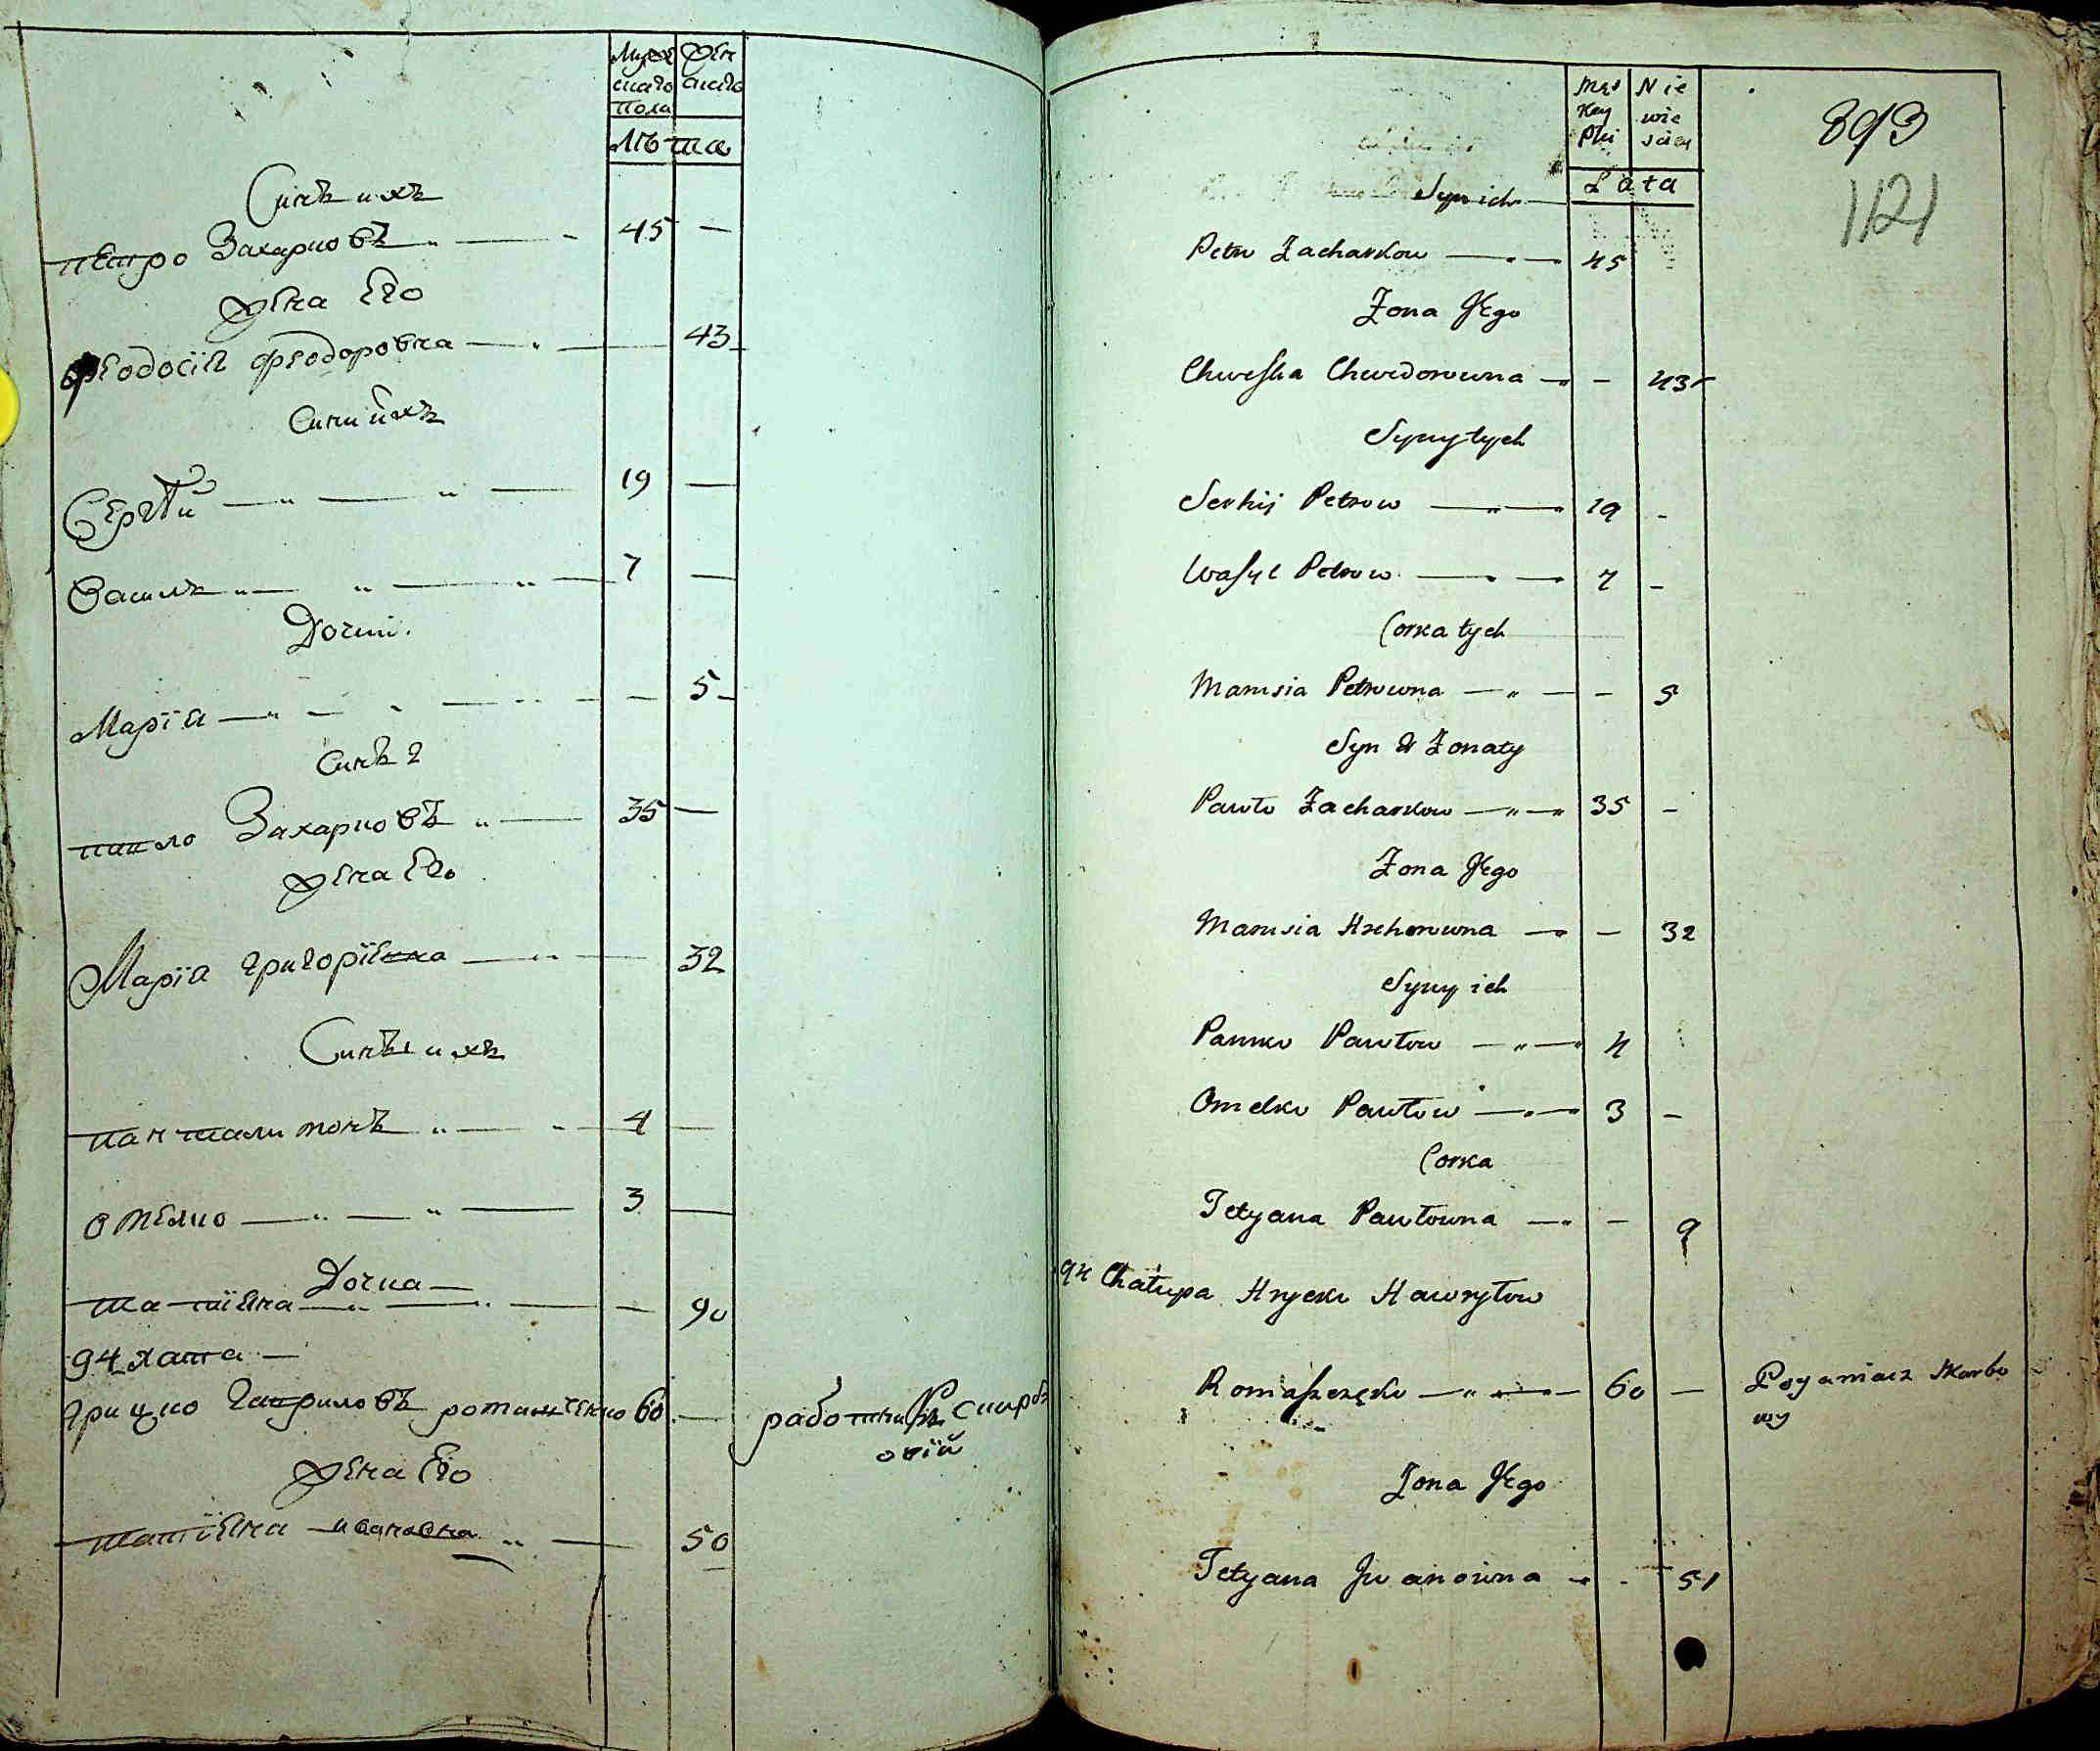 Мужскаго пола
Женскаго
Лѣта
Синъ ихъ
петро Захарковъ 45 —
жена Его
Феодосія феодоровна — 43
Сини ихъ
Сергѣй — 19 —
Василь — 7 —
Дочки.
Марія — 5
Синъ 2
павло Захарковъ 35 —
жена Его
Марія григоріевна — 32
Синъ ихъ
панталимонъ 4 —
Омелко — 3 —
Дочка —
татіяна — — 90
94 хата —
грицко гавриловъ ромашченко 60 — работникъ скарбовій
жена Его
татіяна ивановна 50
Męs Key Płci
Nie wie sciey
Lata
893
1121
Syn ich
Petro Zacharkow — 45
Zona Jego
Chweska Chwedorowna — - 43
Syny tych
Serhij Petrow — 19 -
Wasyl Petrow — 7 -
Corka tych
Marusia Petrowna — - 5
Syn 2 Zonaty
Pawło Zacharkow — 35 -
Zona Jego
Marusia Hrehorowna — - 32
Syny ich
Panko Pawłow — 4
Omelko Pawłow — 3 -
Corka
Tetyana Pawłowna — - 9
94 Chałupa Hrycko Hawryłow
Romaszczęko — 60 — Poganiacz Skarbo
wy
Zona Jego
Tetyana Jwanowna - - 51